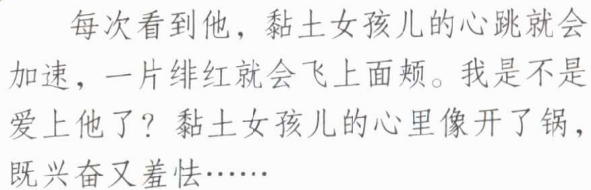 每次看到他，黏土女孩儿的心跳就会
加速，一片绯红就会飞上面颊。我是不是
爱上他了？黏土女孩儿的心里像开了锅，
既兴奋又羞怯……